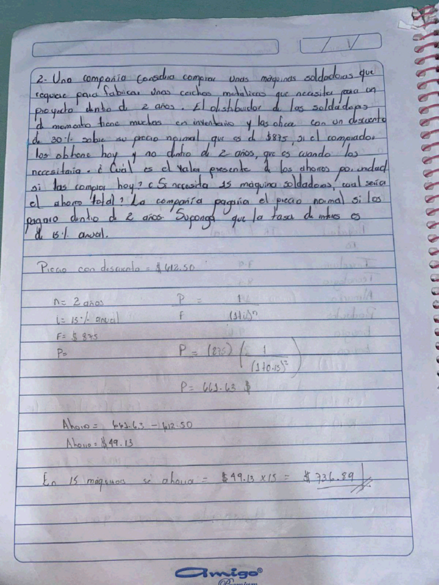 2- Una compañia considera comprar unas maquinas soldadoras que
requiere para fabricar unas conchas metalicas que necesita para un
proyecto dentro de 2 años. El distribuidor de las soldadoras
de momento tiene muchas en inventario y las ofrece con un descuento
de 30% sobre su precio normal que es de $875, si el comprador
las obtiene hoy y no dentro de 2 años, que es cuando las
necesitaria. ¿Cuál es el valor presente de los ahorros por unidad
si las compra hoy? ¿Si necesita 15 maquina soldadoras, cual seria
el ahorro total? La compañia pagaria el precio normal si las
pagara dentro de 2 años. Suponga que la tasa de interes es
de 15% anual.
Precio con descuento = $612.50
n= 2 años P = 1
i= 15% anual F (1+i)ⁿ
F= $ 875
P= P = (875) ( 1 / (1+0.15)² )
P= 661.63 $
Ahorro = 661.63 - 612.50
Ahorro = $49.13
En 15 maquinas se ahorra = $49.13 x 15 = $ 736.89
amigo